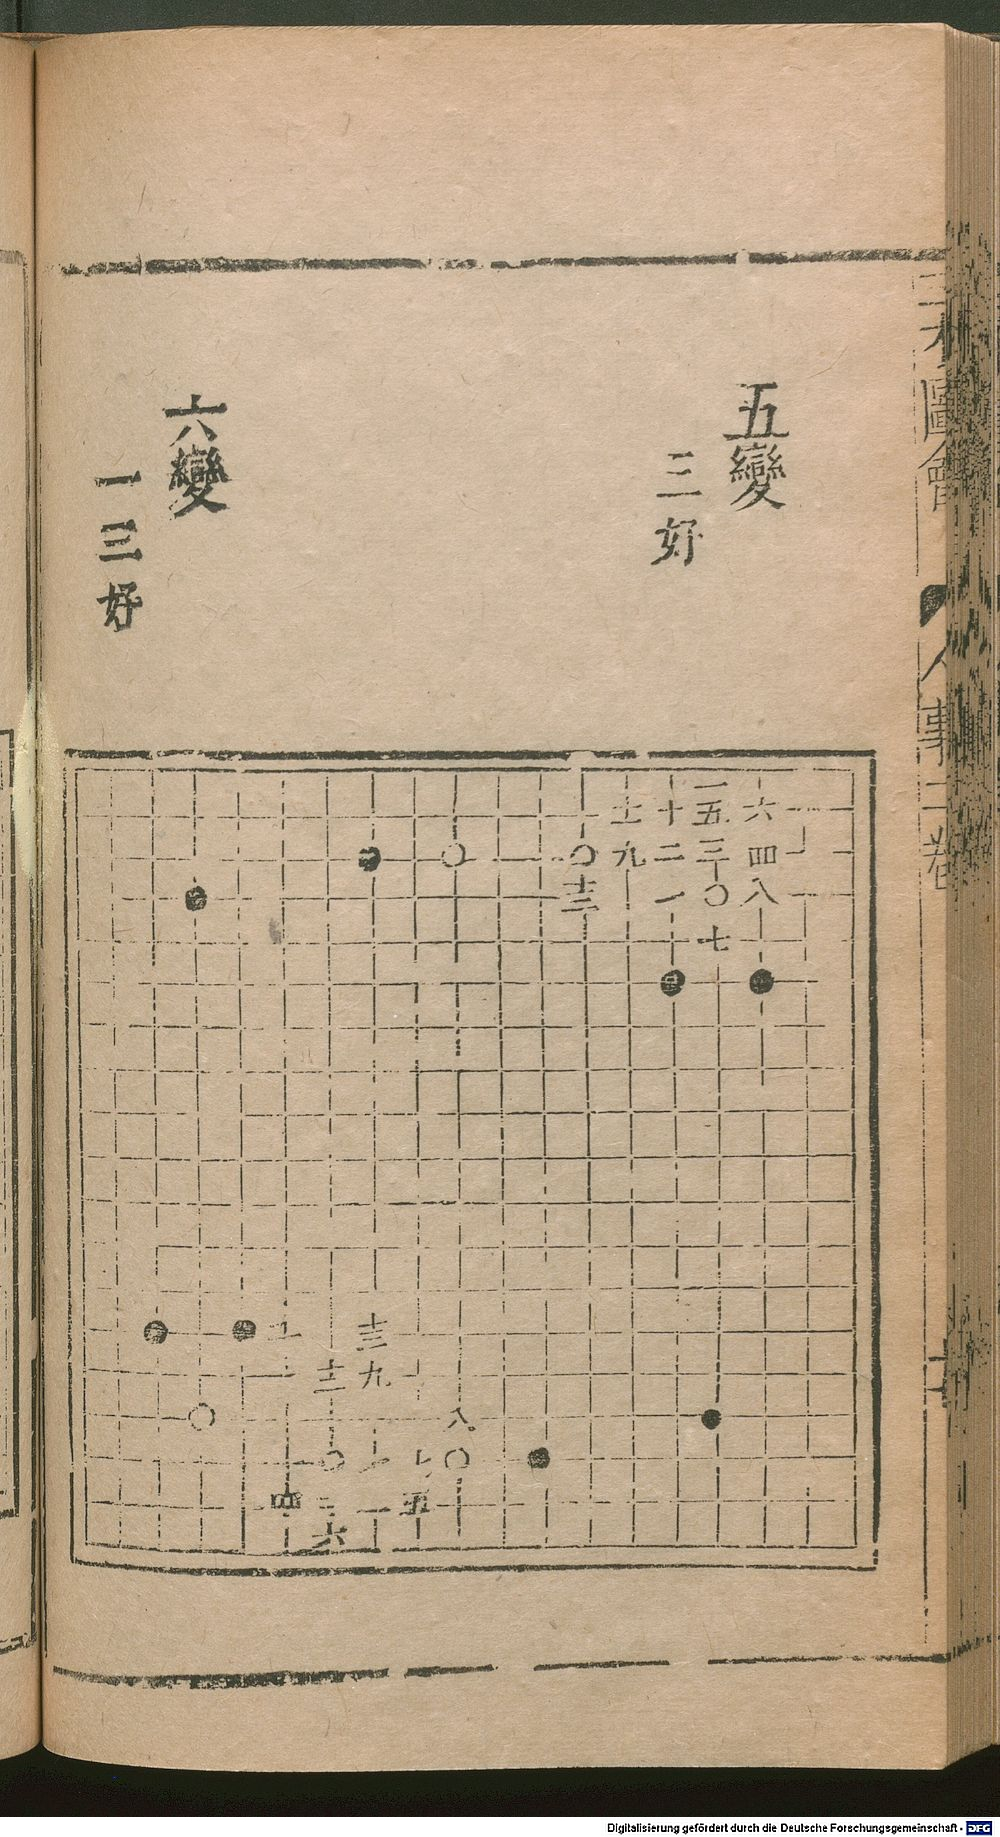 五變
三好
六變
一三好
圖會
人事
六
四
八
五
三
七
十
二
一
九
十三
九
八
四
五
六
Digitalisierung gefördert durch die Deutsche Forschungsgemeinschaft - DFG